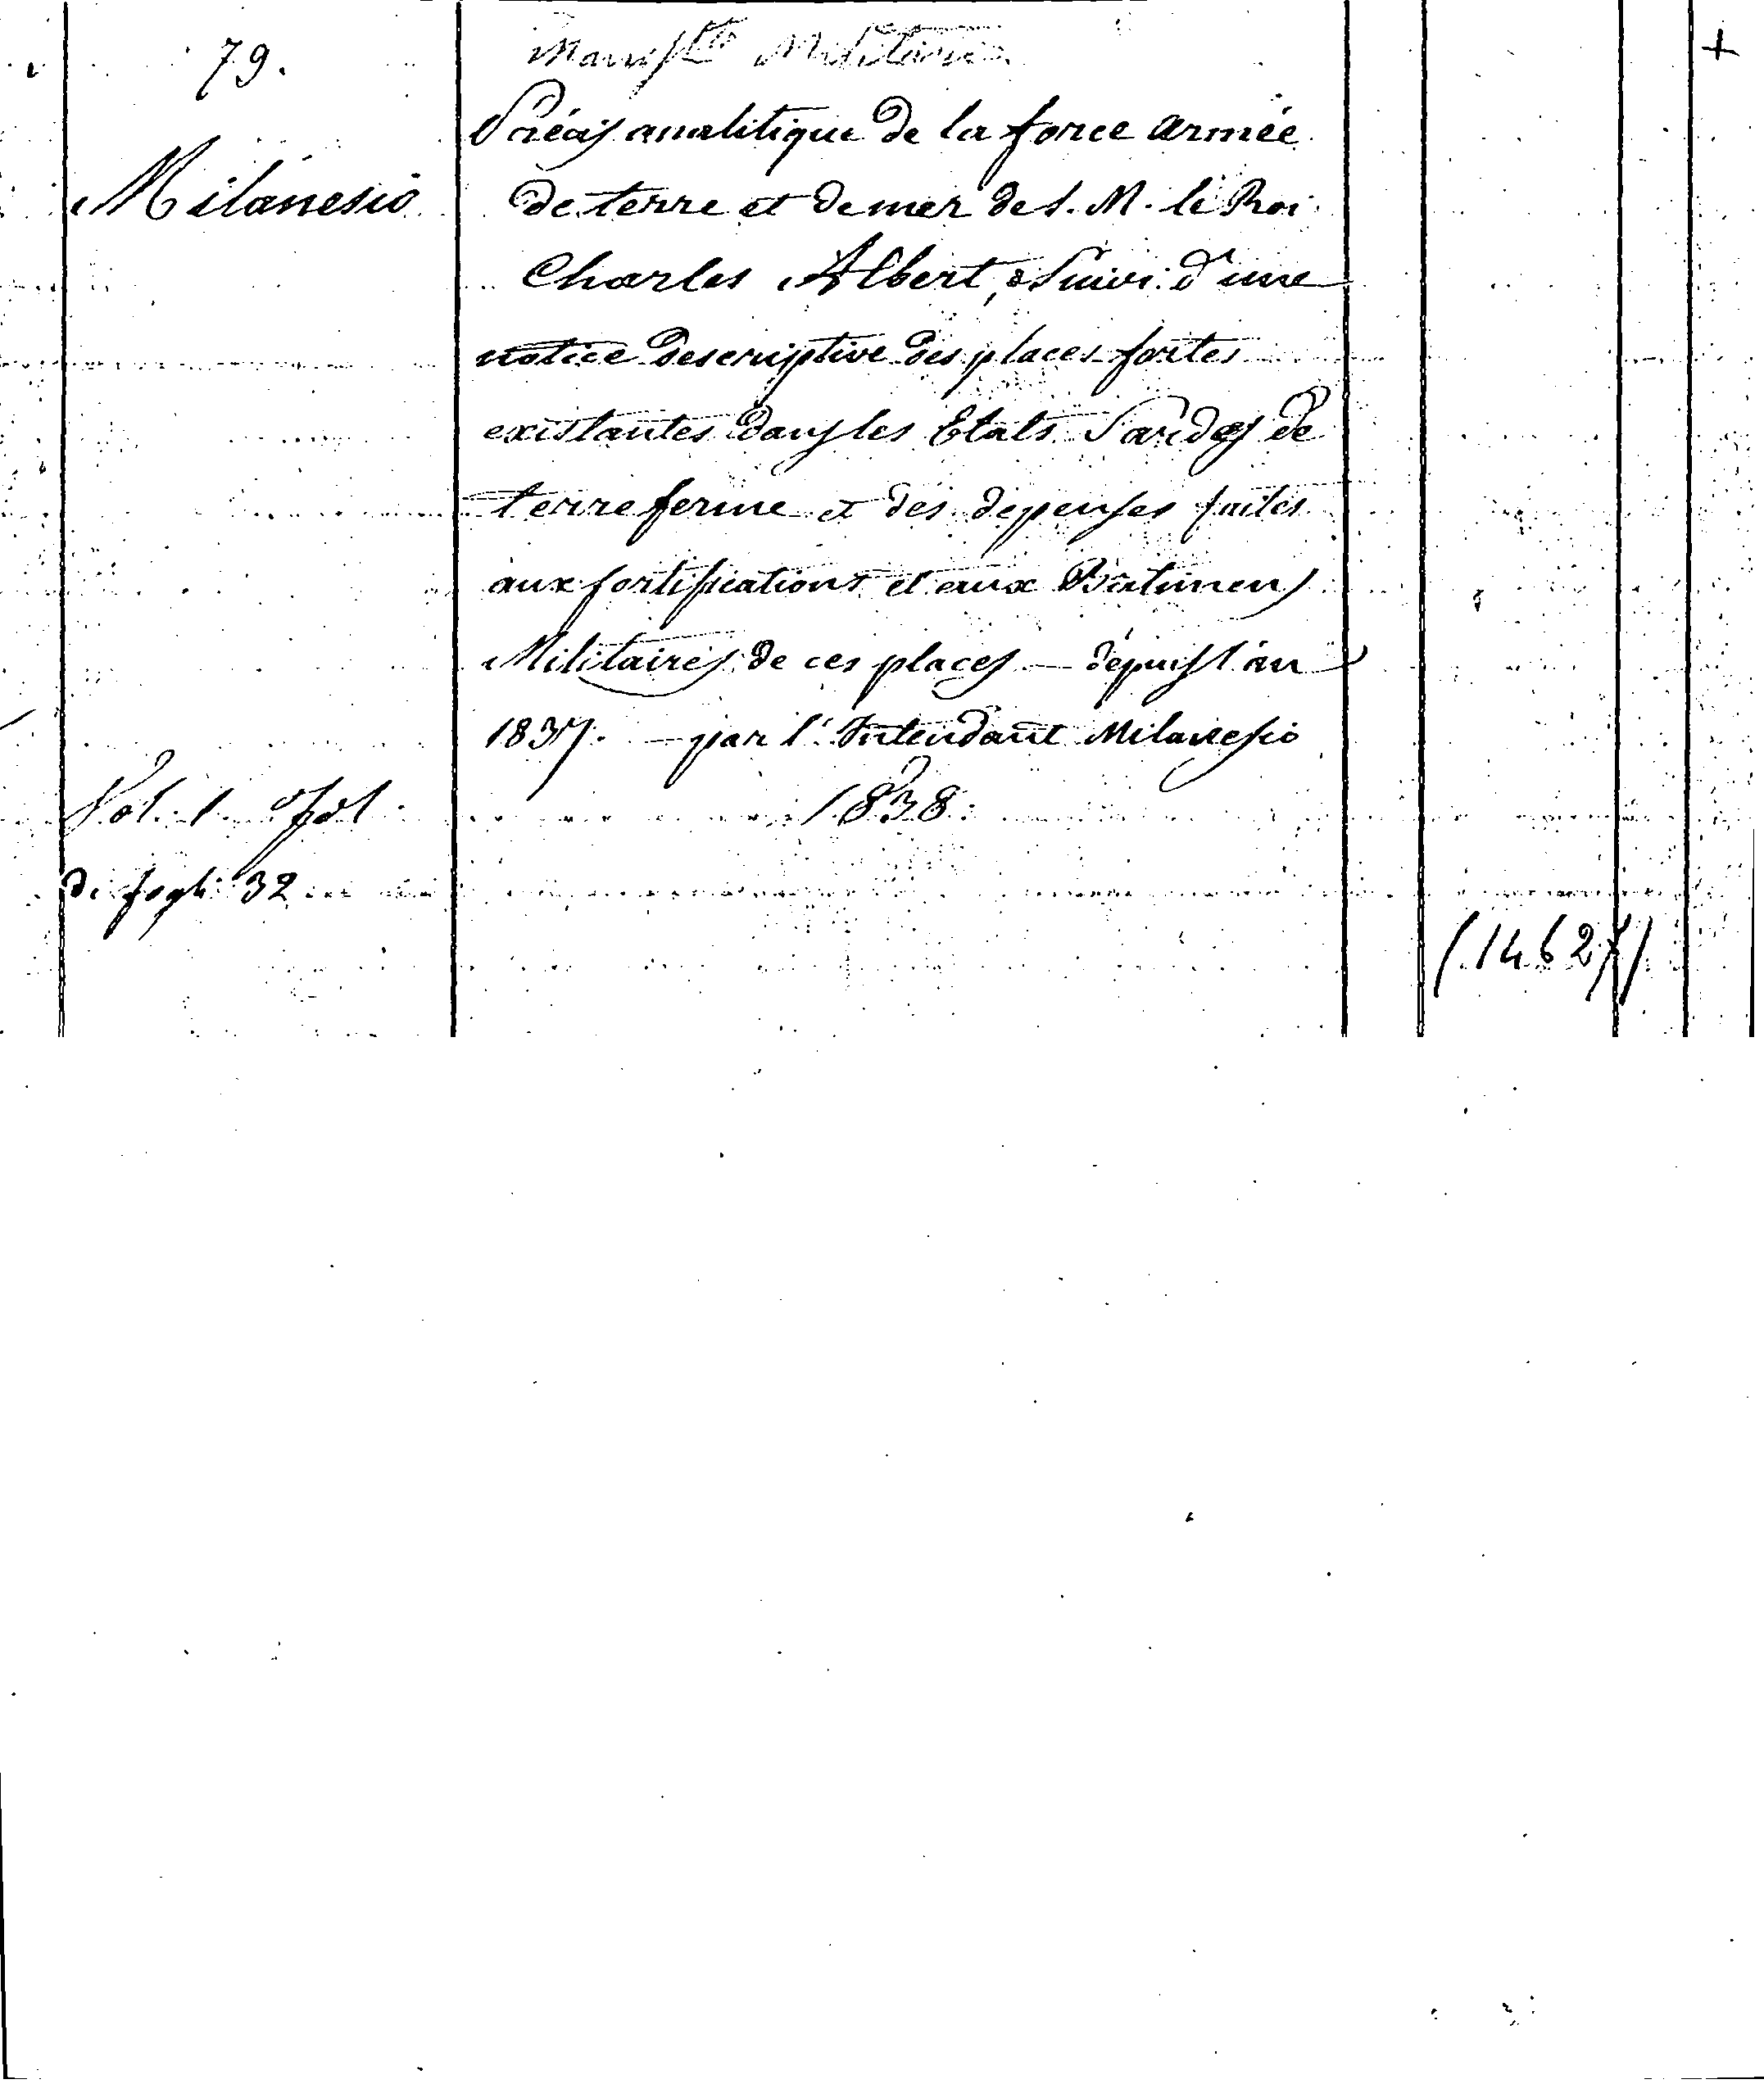 79.
Milanesio
Manusti Militari
Précis analitique de la force armée
de terre et de mer de S. M. le Roi
Charles Albert, suivi d'une
notice descriptive des places fortes
existantes dans les Etats Sardes de
terre ferme et des depenses faites
aux fortifications et aux Batimens
Militaires de ces places — depuis l'an
1837. — par l'Intendant Milanesio
1838.
Vol. 1.
di fogli 32
(14627)
+